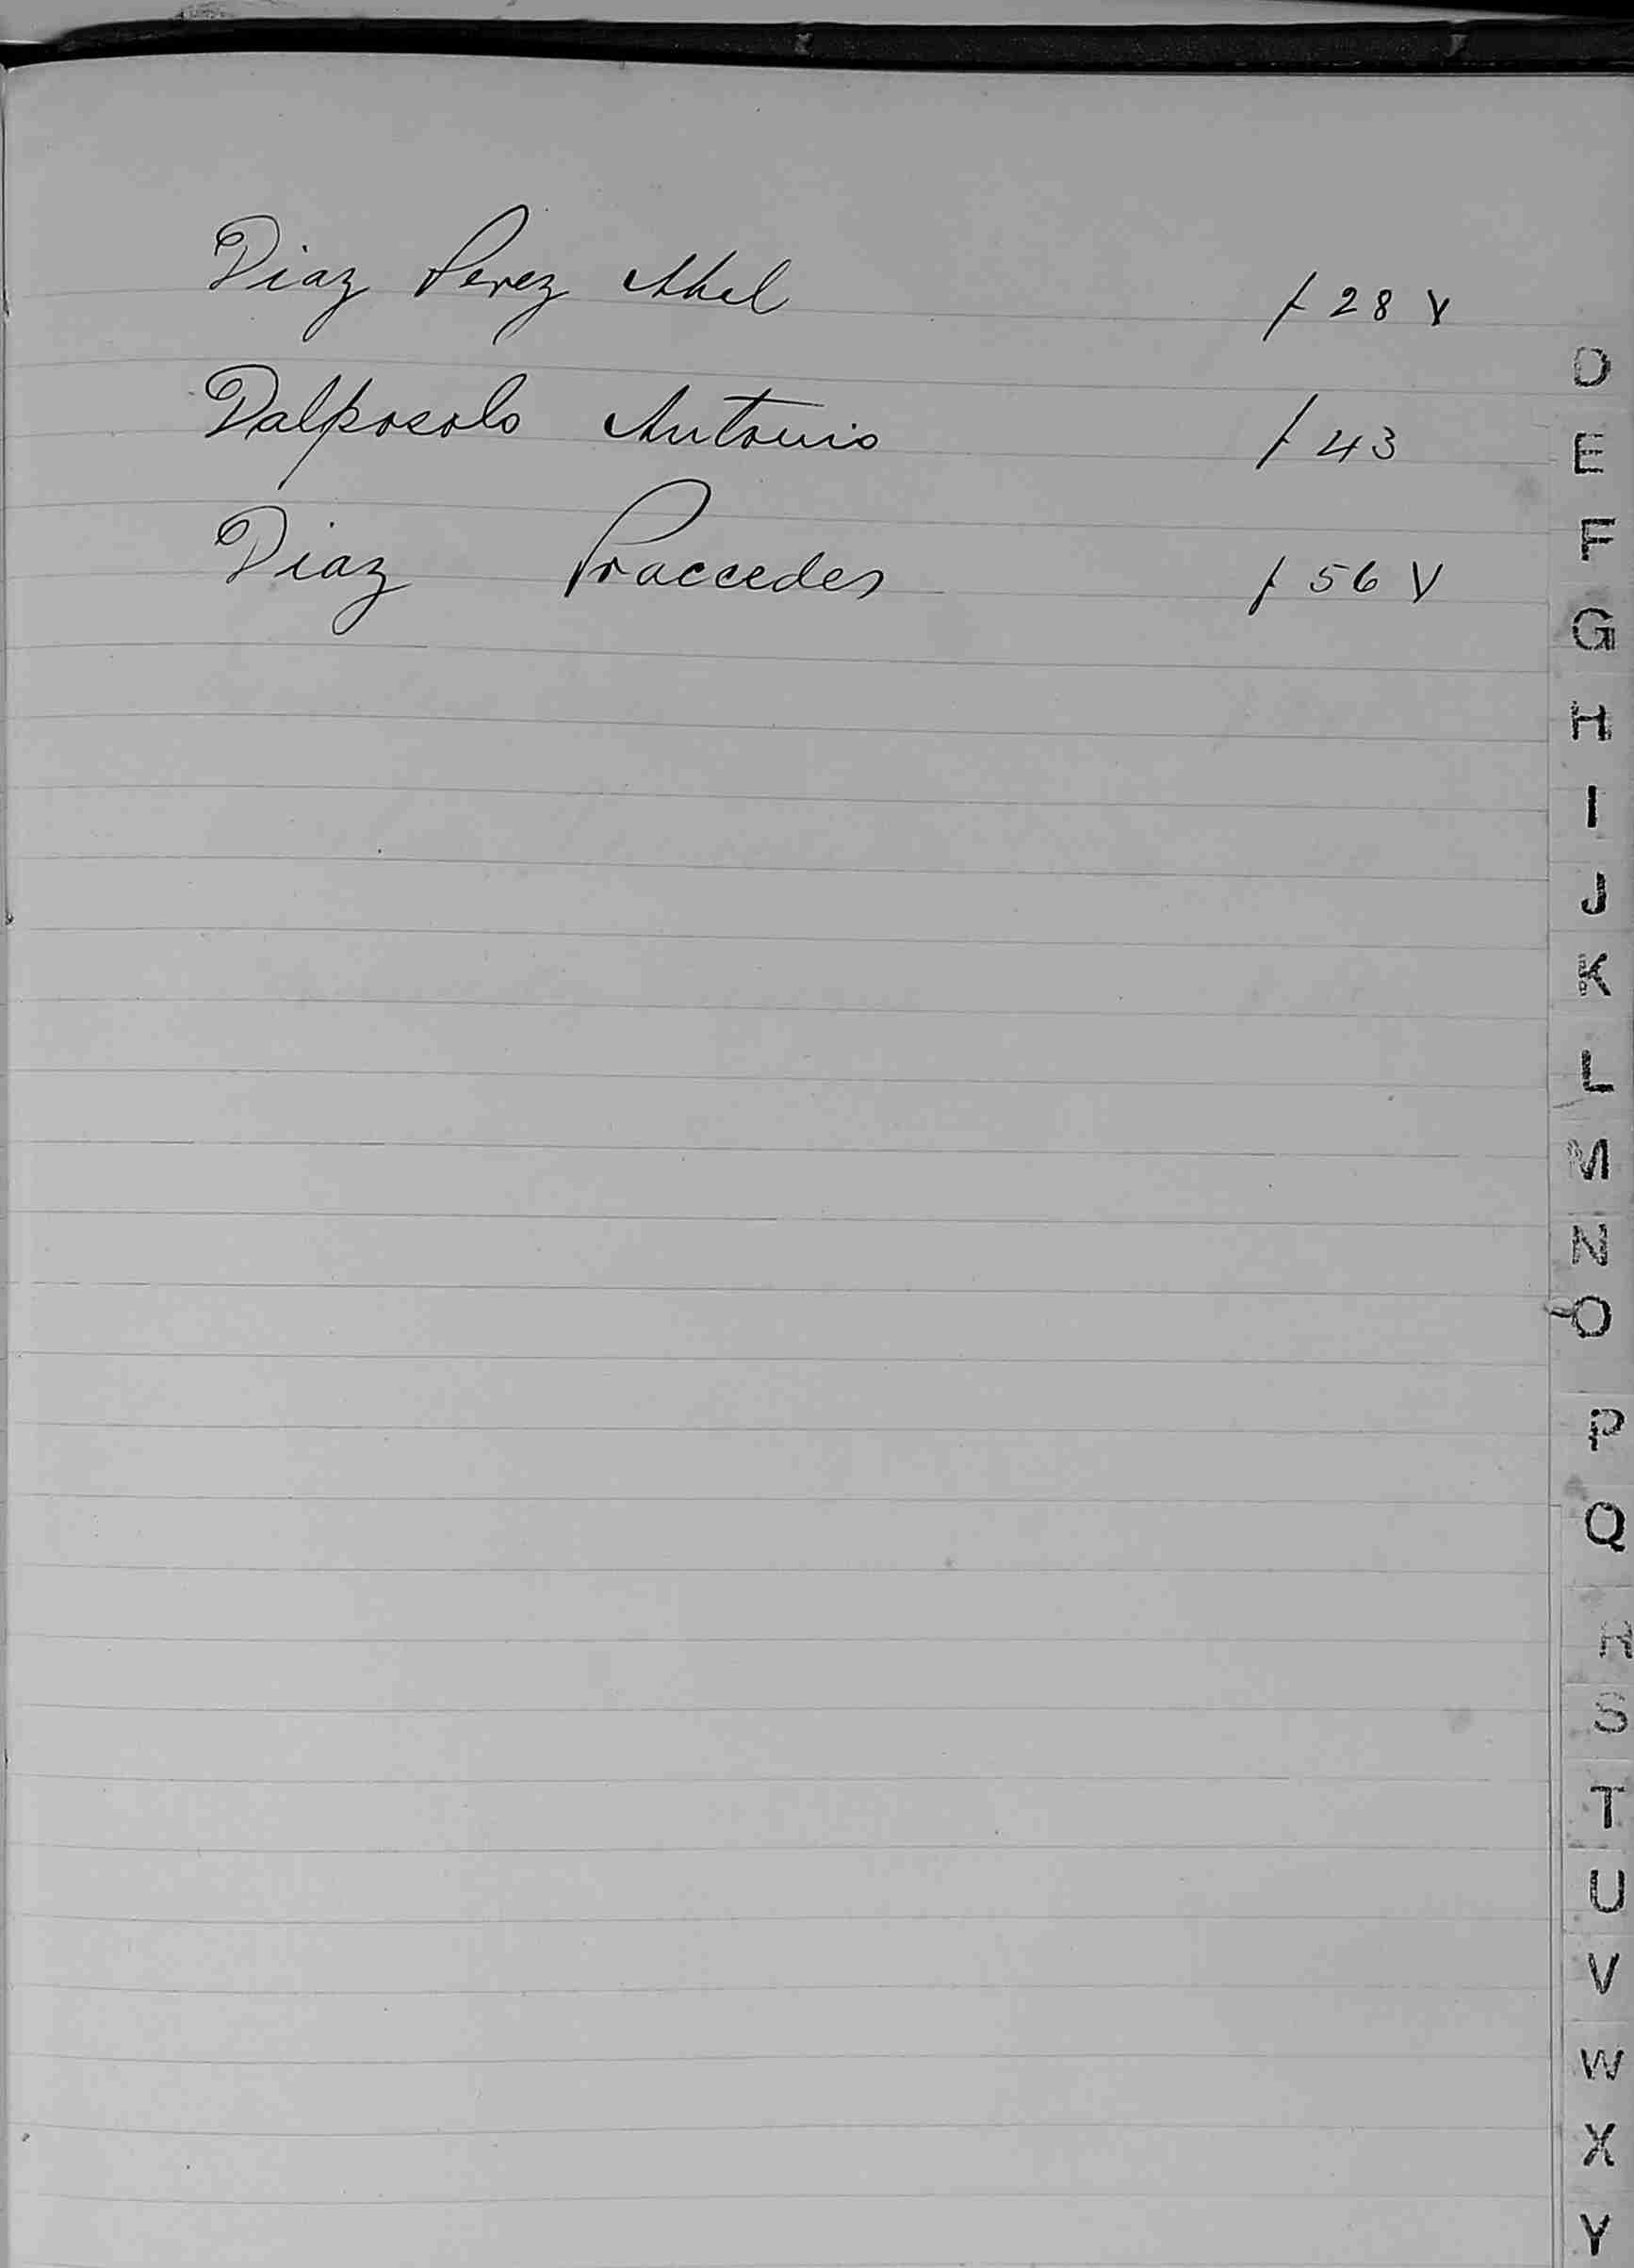 Diaz Perez Abel f 28 V
Dalposolo Antonio f 43
Diaz Praccedes f 56 V
D
E
F
G
H
I
J
K
L
M
N
O
P
Q
R
S
T
U
V
W
X
Y